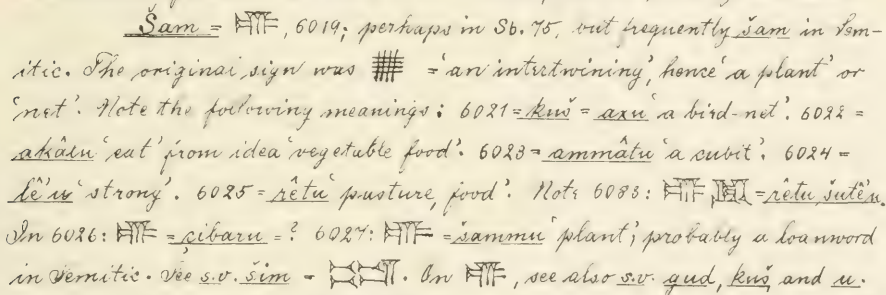 Šam = 𒌑, 6019; perhaps in Sb. 75, but frequently šam in Sem-
itic. The original sign was = 'an intertwining', hence 'a plant' or
'net'. Note the following meanings: 6021 = kuš = axu 'a bird-net'. 6022 =
akâlu 'eat' from idea 'vegetable food'. 6023 = ammâtu 'a cubit'. 6024 =
lê'u 'strong'. 6025 = rêtu 'pasture, food'. Note 6083: 𒌑 = rêtu šutê'u.
In 6026: 𒌑 = çibaru = ? 6027: 𒌑 = šammu 'plant'; probably a loanword
in Semitic. See s.v. šim = . On 𒌑, see also s.v. gud, kuš, and u.